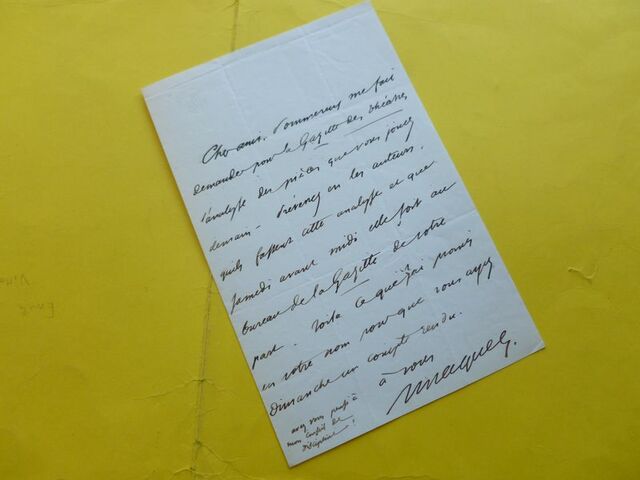 Cher ami. Pommereux me fait
demander pour la Gazette des théâtres
l'analyse des pièces que vous jouez
demain - Prévenez en les auteurs.
qu'ils fassent cette analyse et que
Samedi avant midi elle soit au
bureau de la Gazette de votre
part. Voilà ce que j'ai promis
en votre nom pour que vous ayez
Dimanche un compte rendu.
à vous
Maquet.
avez vous pensé à
mon conseil de
discipline?